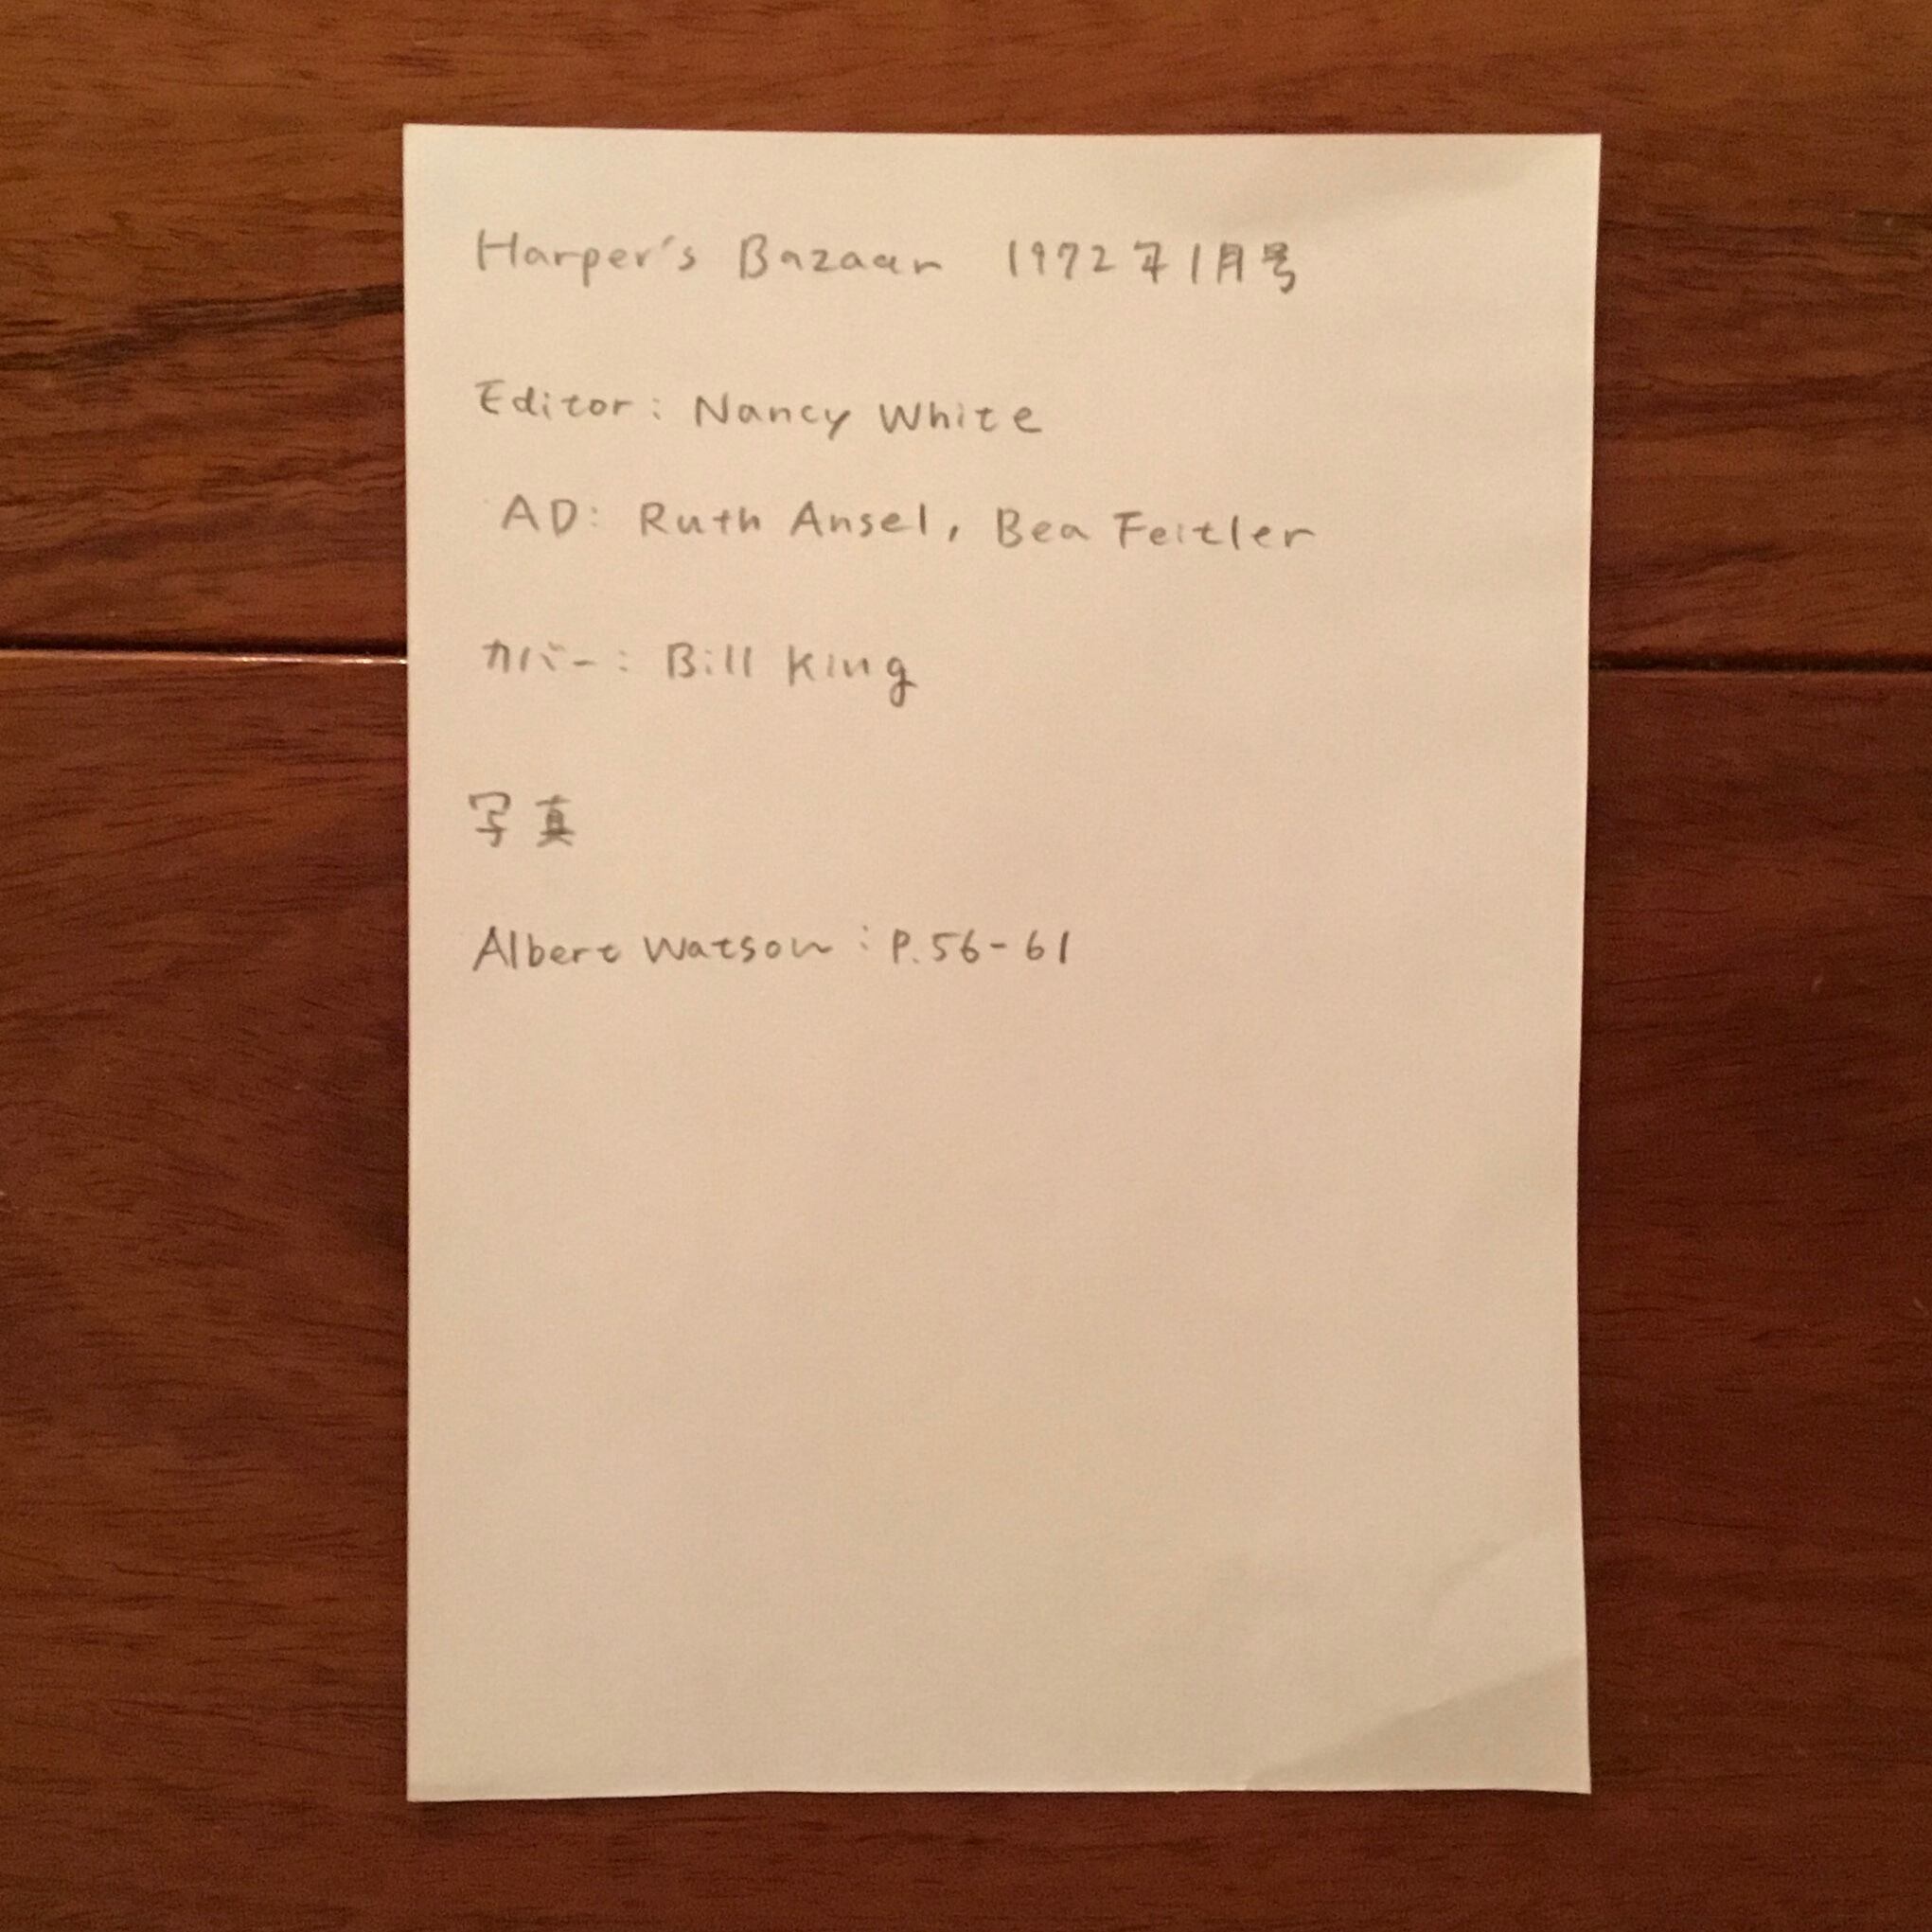 Harper's Bazaar 1972年1月号
Editor: Nancy White
AD: Ruth Ansel, Bea Feitler
カバー: Bill King
写真
Albert Watson: P.56-61